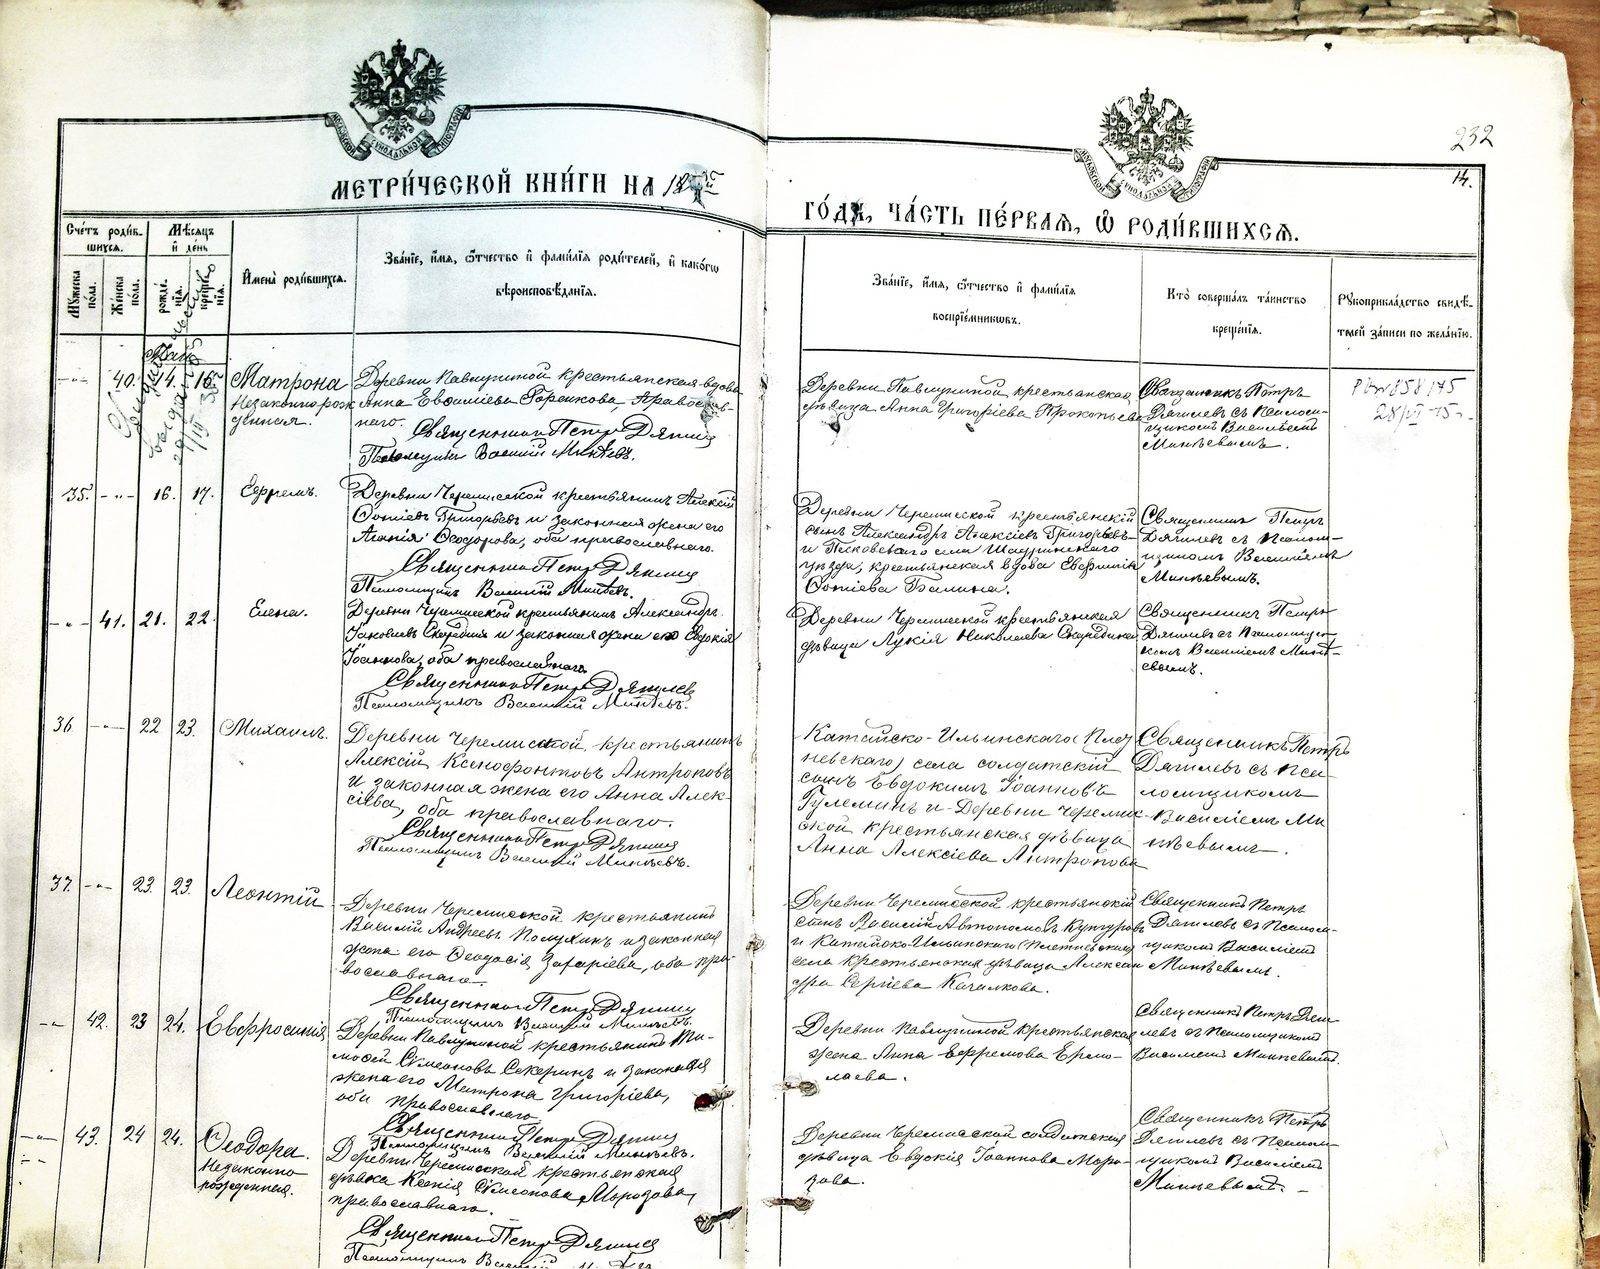 232
14.
МЕТРИ́ЧЕСКОЙ КНИ́ГИ НА
ГО́ДЪ, ЧА́СТЬ ПЕ́РВАЯ, Ѡ РОДИ́ВШИХСѦ.
Сче́тъ роди́в-
шихсѧ.
Мѣ́сѧцъ
и҆ де́нь
Мꙋ́жеска по́ла.
Же́нска по́ла.
рожде́нїѧ.
креще́нїѧ.
И҆мена̀ роди́вшихсѧ.
Зва́нїе, и҆́мѧ, ѻ҆́тчество и҆ фами́лїѧ роди́телей, и҆ како́гѡ
вѣроисповѣ́данїѧ.
Зва́нїе, и҆́мѧ, ѻ҆́тчество и҆ фами́лїѧ
воспрїе́мникѡвъ.
Кто̀ соверша́лъ та́инство
креще́нїѧ.
Рꙋкоприкла́дство свидѣ́-
телей за́писи по жела́нїю.
Май
40. 14. 15. Матрона
Незаконнорож
денная.
Деревни Павлушной крестьянская вдова
Анна Евсиміева Горсткова, Православ-
наго.
Священникъ Петръ Дягилев
Псаломщикъ Василій Минѣевъ.
Деревни Павлушной крестьянская
дѣвица Анна Григоріева Прокопьева
Священникъ Петръ
Дягилевъ съ Псаломщи-
щикомъ Василіемъ
Минѣевымъ.
35. 16. 17. Ефремъ.
Деревни Черемисской крестьянинъ Алексій
Фотіевъ Григорьевъ и законная жена его
Агапія Ѳеодорова, оба православнаго.
Священникъ Петръ Дягилев
Псаломщикъ Василій Минѣевъ.
Деревни Черемисской крестьянскій
сынъ Александръ Алексіевъ Григорьевъ
и Песковскаго села Шадринскаго
уѣзда, крестьянская вдова
Фотіева
Священникъ Петръ
Дягилевъ съ Псалом-
щикомъ Василіемъ
Минѣевымъ.
41. 21. 22. Елена.
Деревни Черемисской крестьянинъ Александръ
Іаковлевъ и законная жена его Евдокія
Іоаннова, оба православнаго.
Священникъ Петръ Дягилев
Псаломщикъ Василій Минѣевъ.
Деревни Черемисской крестьянская
дѣвица Лукія Николаева
Священникъ Петръ
Дягилевъ съ Псаломщи-
комъ Василіемъ Минѣ-
евымъ.
36 22 23. Михаилъ.
Деревни Черемисской, крестьянинъ
Алексій Ксенофонтовъ Антроповъ
и законная жена его Анна Алек-
сіева, оба православнаго.
Священникъ Петръ Дягилев
Псаломщикъ Василій Минѣевъ.
Катайско-Ильинскаго (Плет
невскаго) села солдатскій
сынъ Евдокимъ Іоанновъ
Гулеминъ и Деревни Черемис
ской крестьянская дѣвица
Анна Алексіева Антропова
Священникъ Петръ
Дягилевъ съ Пса-
ломщикомъ
Василіемъ Ми
нѣевымъ.
37. 23. 23. Леонтій
Деревни Черемисской крестьянинъ
Василій Андреевъ Полухинъ и законная
жена его Ѳеодосія Захаріева, оба пра-
вославнаго.
Священникъ Петръ Дягилев
Псаломщикъ Василій Минѣевъ.
Деревни Черемисской крестьянскій
сынъ Василій Автономовъ Кунгуровъ
и Катайско-Ильинскаго (Плетневскаго)
села крестьянская дѣвица Алексан
дра Сергіева Качалкова.
Священникъ Петръ
Дягилевъ съ Псалом-
щикомъ Василіемъ
Минѣевымъ.
42. 23 24. Евфросинія
Деревни Павлушной крестьянинъ Ти-
моѳей Симеоновъ Секеринъ и законная
жена его Матрона Григоріева,
оба православнаго.
Священникъ Петръ Дягилев
Псаломщикъ Василій Минѣевъ.
Деревни Павлушной крестьянская
жена Анна Ефремова Ермо-
лаева.
Священникъ Петръ Дяги-
левъ съ Псаломщикомъ
Василіемъ Минѣевымъ.
43. 24 24. Ѳеодора.
Незаконно
рожденная.
Деревни Черемисской крестьянская
дѣвка Ксенія Симеонова Морозова,
православнаго.
Священникъ Петръ Дягилев
Псаломщикъ Василій
Деревни Черемисской солдатская
дѣвица Евдокія Іоаннова Моро-
зова.
Священникъ Петръ
Дягилевъ съ Псалом-
щикомъ Василіемъ
Минѣевымъ.